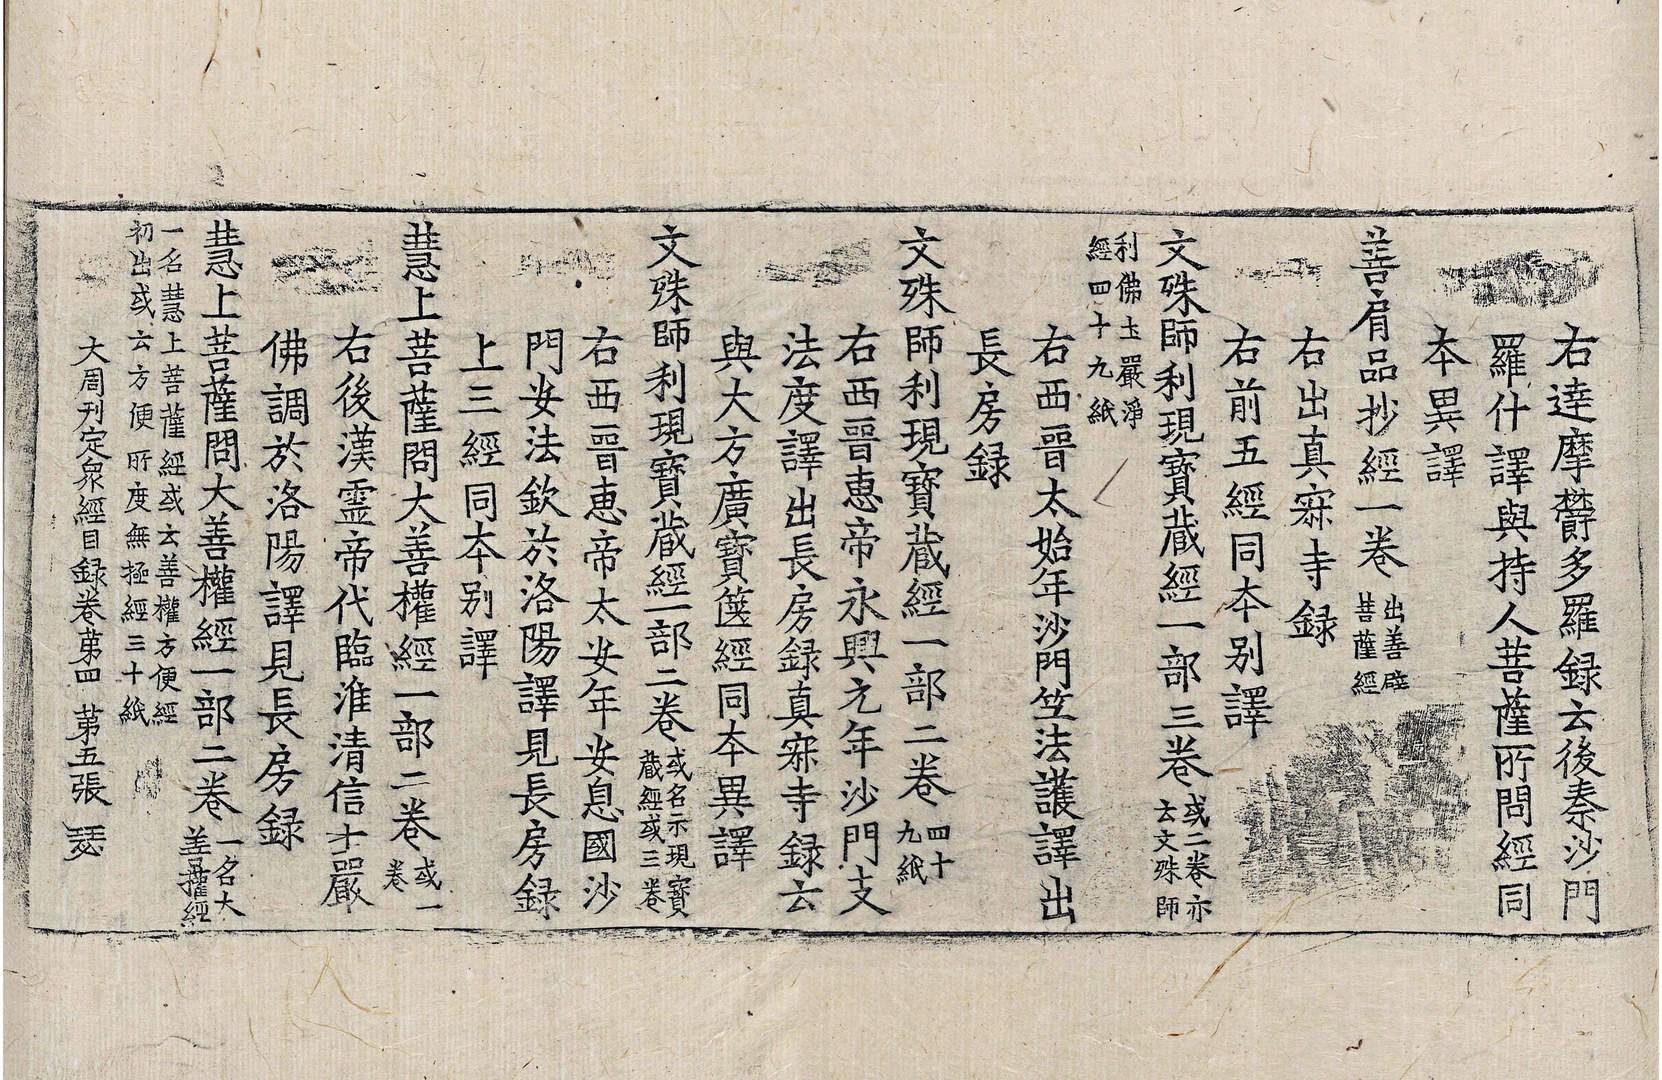 右達摩欝多羅録云後秦沙門
羅什譯與持人菩薩所問經同
夲異譯
善肩品抄經一巻 出善臂菩薩經
右出真寂寺録
右前五經同夲别譯
文殊師利現寳蔵經一部三巻 或二巻亦云文殊師
利佛土嚴淨經四十九紙
右西晉太始年沙門竺法護譯出
長房録
文殊師利現寳蔵經一部二巻 四十九紙
右西晉恵帝永興元年沙門支
法度譯出長房録真寂寺録云
與大方廣寳篋經同夲異譯
文殊師利現寳蔵經一部二巻 或名示現寳蔵經或三巻
右西晉恵帝太安年安息國沙
門安法欽於洛陽譯見長房録
上三經同夲别譯
慧上菩薩問大善權經一部二巻 或一巻
右後漢靈帝代臨淮清信士嚴
佛調於洛陽譯見長房録
慧上菩薩問大善權經一部二巻 一名大善權經
一名慧上菩薩經或云善權方便經
初出或云方便所度無極經三十紙
大周刊定衆經目録巻苐四 苐五張 瑟